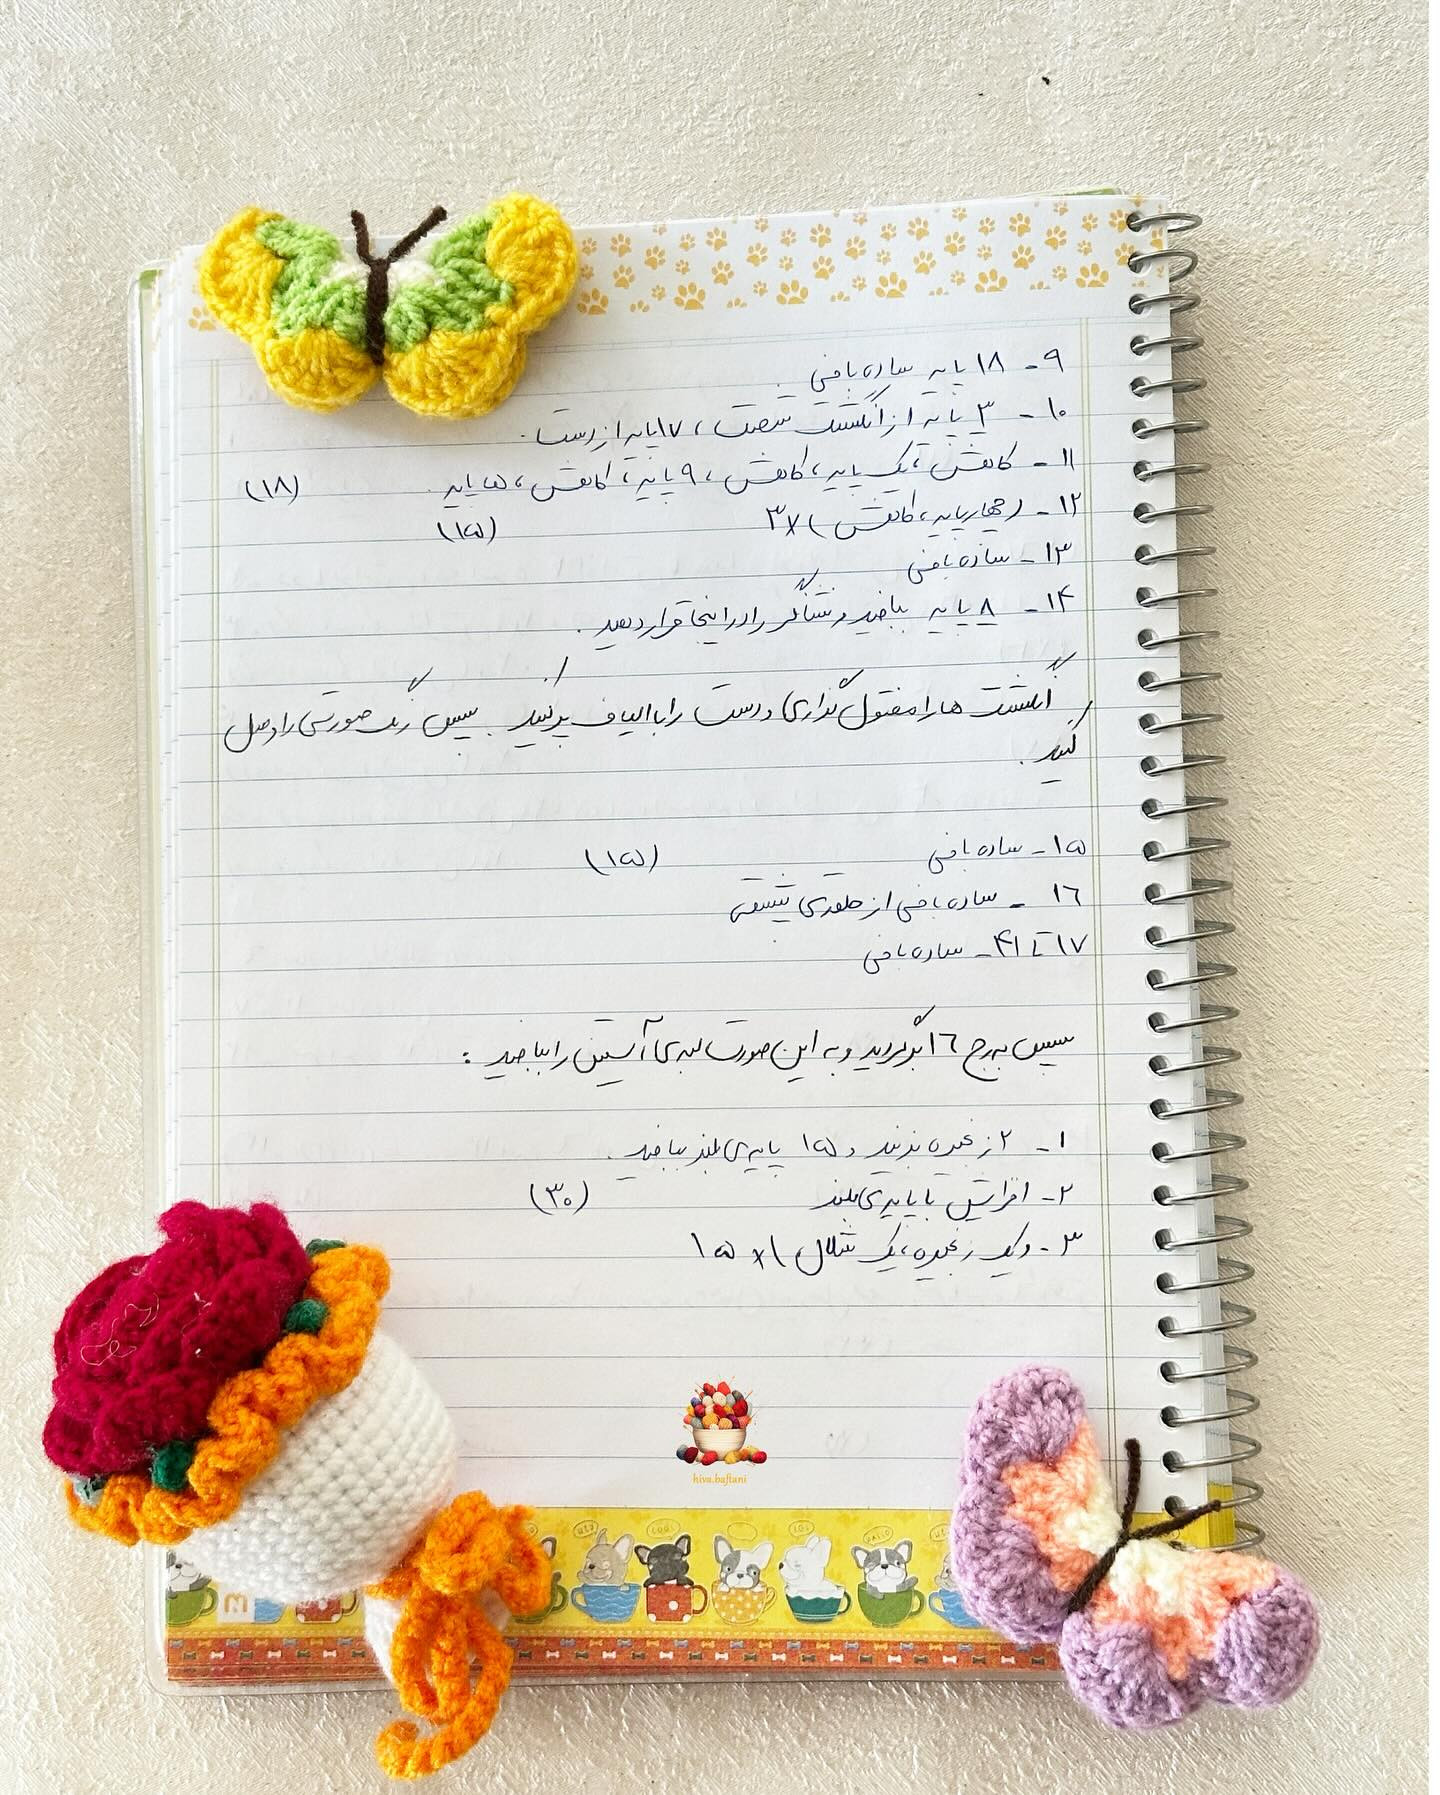 ۹- ۱۸ پایه ساده بافی.
۱۰- ۳ پایه از انگشت شصت، ۱۷ پایه از دست.
۱۱- کاهش، یک پایه، کاهش، ۹ پایه، کاهش، ۵ پایه. (۱۸)
۱۲- (چهار پایه، کاهش) ×۳ (۱۵)
۱۳- ساده بافی
۱۴- ۸ پایه ببافید و نشانگر را در اینجا قرار دهید.
انگشت ها را مفتول گذاری و دست را با الیاف پر کنید. سپس رنگ صورتی را وصل
کنید.
۱۵- ساده بافی (۱۵)
۱۶- ساده بافی از حلقه ی پشتی
۱۷ تا ۴۱- ساده بافی
سپس به رج ۱۶ برگردید و به این صورت لبه ی آستین را ببافید:
۱- ۲ زنجیره بزنید و ۱۵ پایه ی بلند ببافید.
۲- افزایش با پایه ی بلند (۳۰)
۳- و یک زنجیره، یک شلال) ×۱۵
hiva.baftani